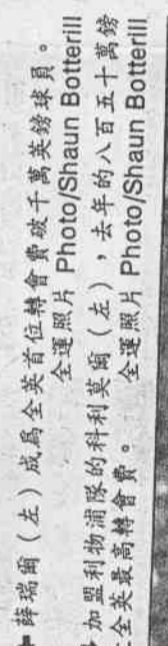 薛瑞爾（左）成爲全英首位轉會費破千萬英鎊球員。
全運照片 Photo/Shaun Botterill
加盟利物浦隊的科利莫爾（左），去年的八百五十萬鎊
全英最高轉會費。 全運照片 Photo/Shaun Botterill